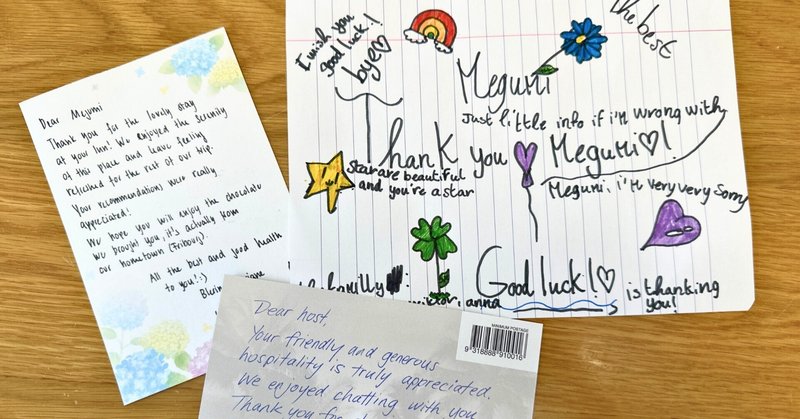 Dear Megumi
Thank you for the lovely stay
at your inn! We enjoyed the serenity
of this place and leave feeling
refreshed for the rest of our trip.
Your recommendations were really
appreciated!
We hope you will enjoy the chocolate
we brought you, it's actually from
our hometown (Fribourg).
All the best and good health
to you! :)
I wish you
good luck!
bye♡
The best
Megumi
Just little info if i'm wrong with
Thank you Megumi♡!
Star are beautiful
and you're a star
Megumi, i'm very very sorry
Good luck!♡
anna
is thanking
you!
Dear host,
Your friendly and generous
hospitality is truly appreciated.
We enjoyed chatting with you
Thank you
MINIMUM POSTAGE
9 316888 910016